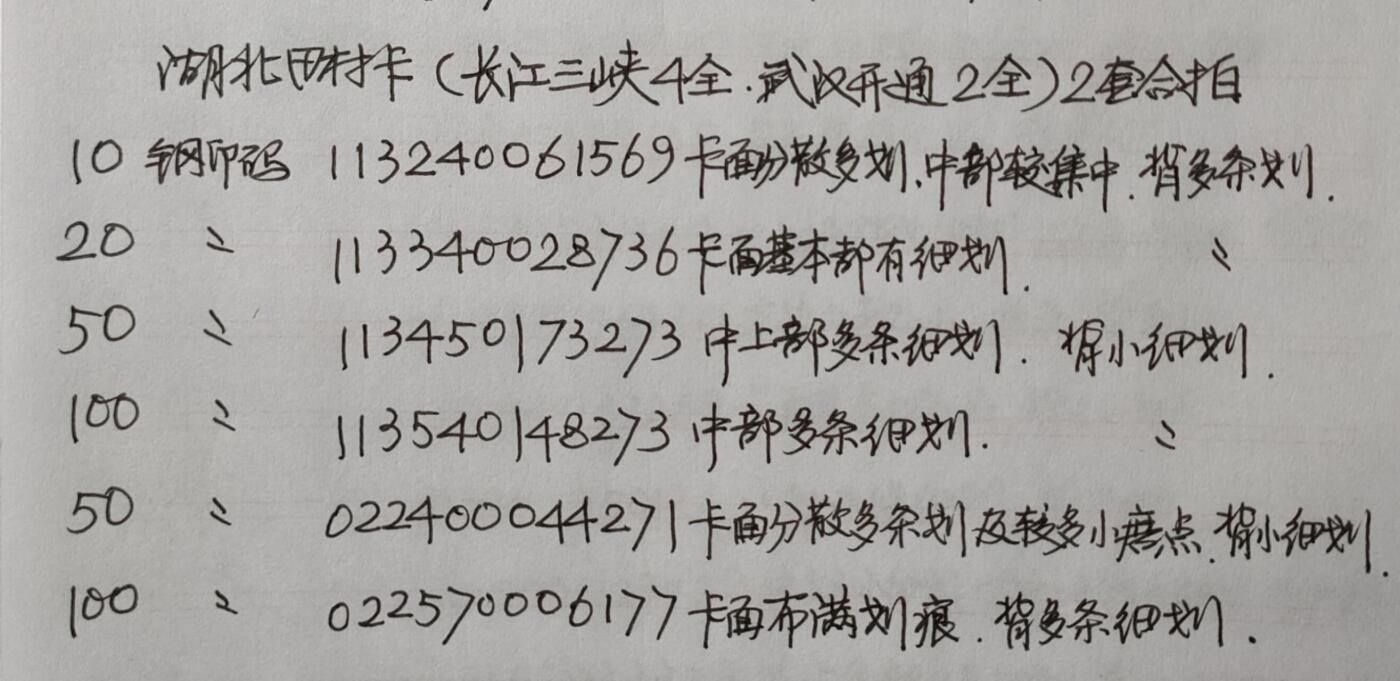 湖北田村卡(长江三峡4全.武汉开通2全)2套合拍
10 钢印码 113240061569卡面分散多划.中部较集中.背多条划.
20 〃 113340028736卡面基本都有细划. 〃
50 〃 113450173273 中上部多条细划. 背小细划.
100 〃 113540148273 中部多条细划. 〃
50 〃 022400044271卡面分散多条划及较多小磨点.背小细划.
100 〃 022570006177卡面布满划痕.背多条细划.